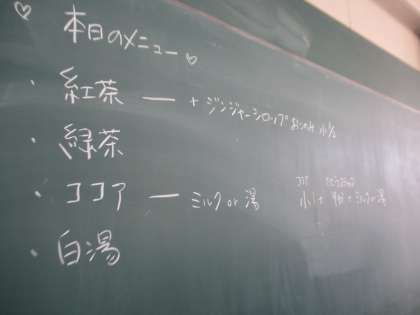 ♡ 本日のメニュー ♡
・紅茶 — + ジンジャーシロップ お好み 小1/2
・緑茶
・ココア — ミルク or 湯
・白湯